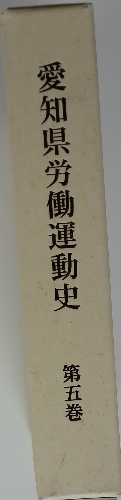 愛知県労働運動史
第五巻